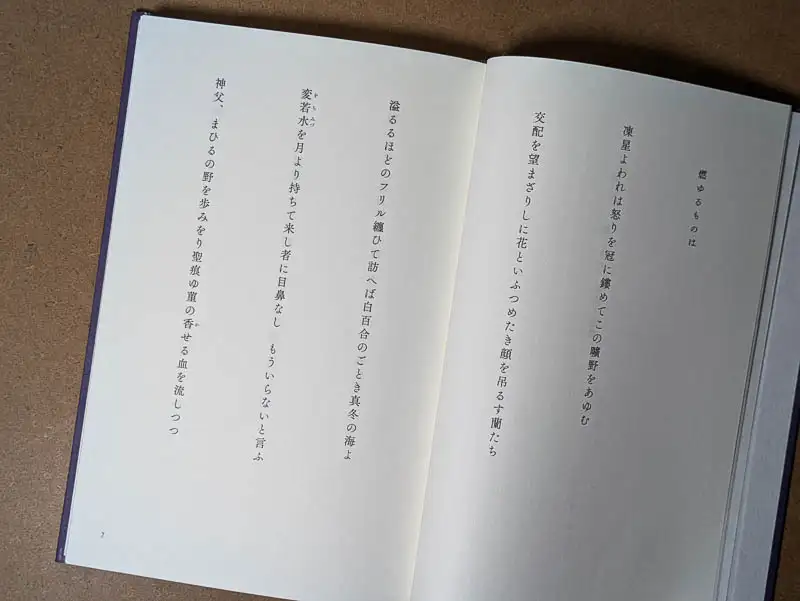 燃ゆるものは
凍星よわれは怒りを冠に鏤めてこの曠野をあゆむ
交配を望まざりしに花といふつめたき顔を吊るす蘭たち
溢るるほどのフリル纏ひて訪へば白百合のごとき真冬の海よ
変若水を月より持ちて来し者に目鼻なし　もういらないと言ふ
をちみづ
神父、まひるの野を歩みをり聖痕ゆ菫の香せる血を流しつつ
か
7